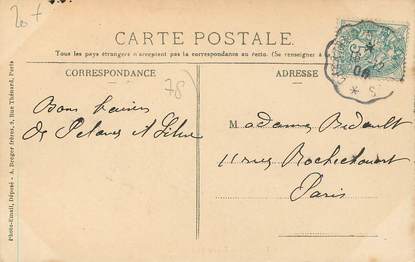 20 +
CARTE POSTALE.
Tous les pays étrangers n'acceptent pas la correspondance au recto. (Se renseigner à
CORRESPONDANCE
78)
ADRESSE
Bons baisers
de
M. adame Bidault
11 rue Rochechouart
Paris
Photo-Email, Déposé - A. Breger frères, 9, Rue Thénard, Paris